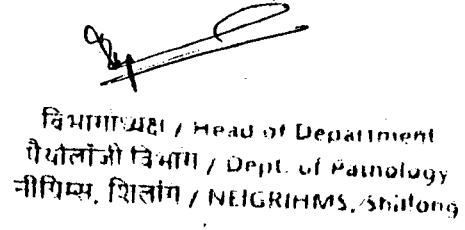 विभागाध्यक्ष / Head of Department
पैथोलॉजी विभाग / Dept. of Pathology
नीग्रिम्स, शिलांग / NEIGRIHMS, Shillong